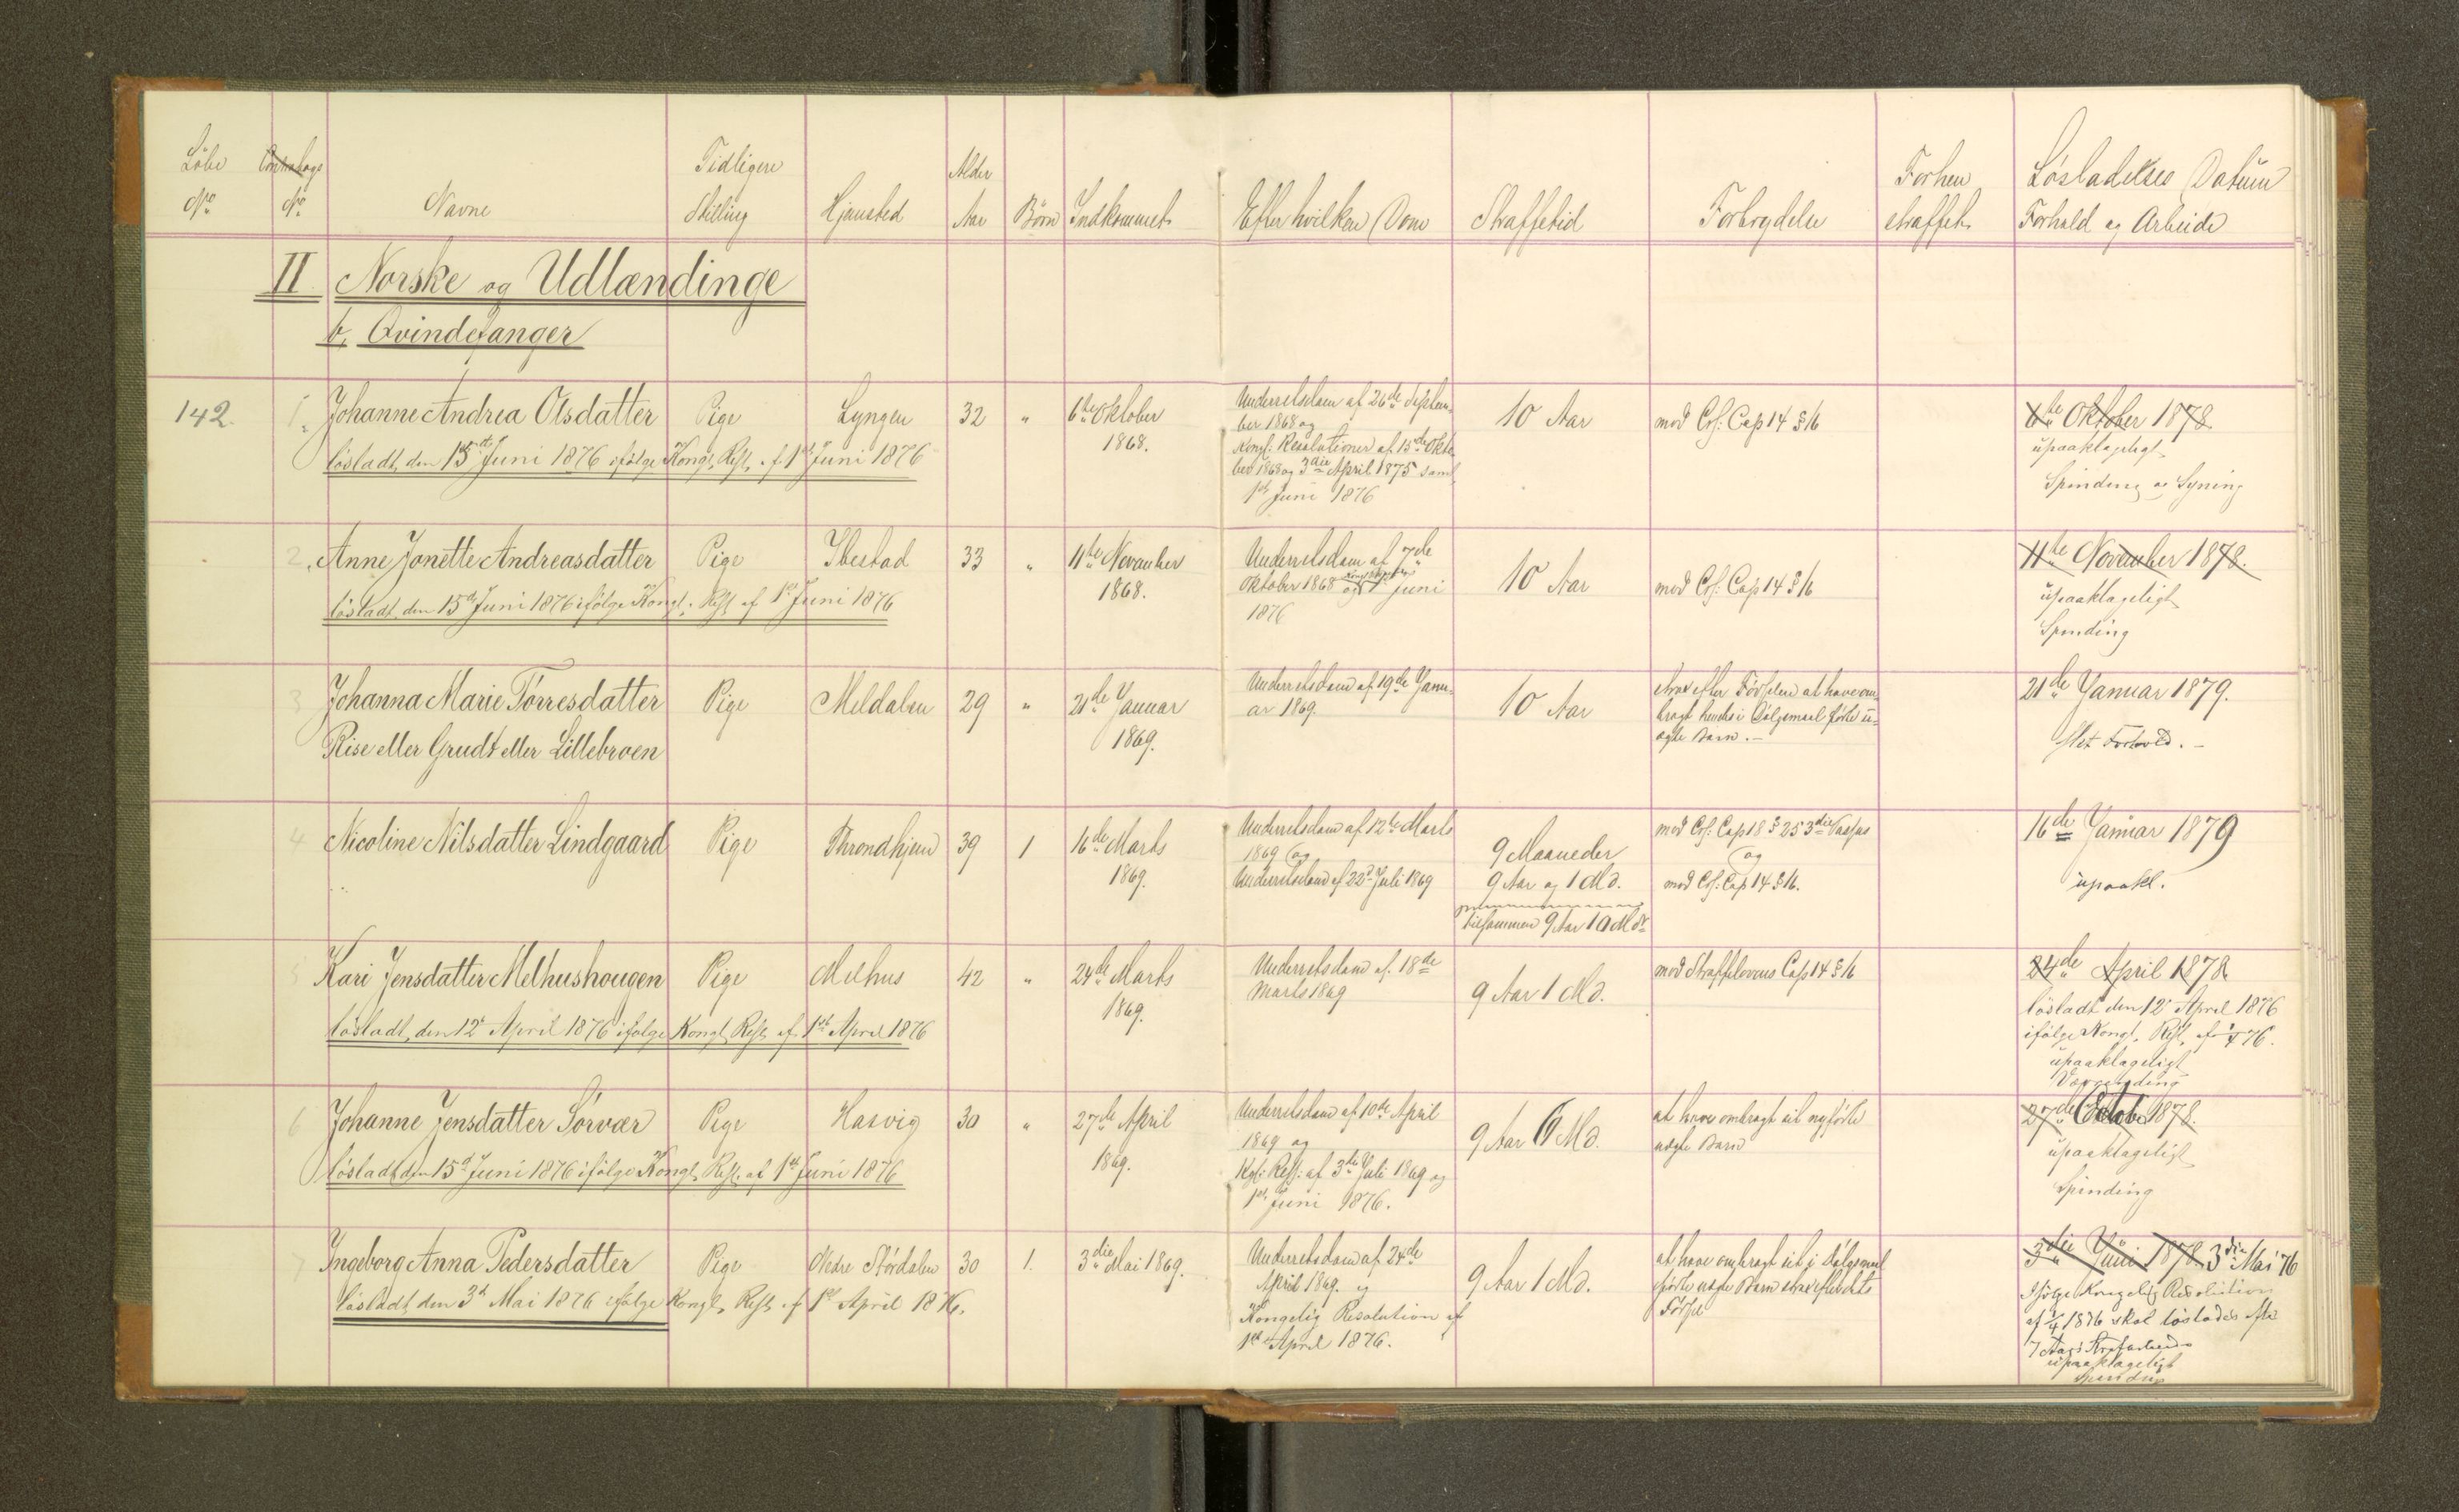 Løbe
No
No
Navne
Tidligere
Stilling
Hjemsted
Alder
Aar
Børn
Indkommet
Efter hvilken Dom
Straffetid
Forbrydelse
Forhen
straffet
Løsladelses Datum
Forhold og Arbeide
II. Norske og Udlændinge
b, Qvindefanger
142. 1. Johanne Andrea Olsdatter
Pige
Lyngen
32
"
6te Oktober
1868.
Underretsdom af 26de Septem-
ber 1868 og
Kongl: Resolutioner af 15de Okto-
ber 1868 og 3die April 1875 samt
1ste Juni 1876
10 Aar
mod Crl: Cap 14 § 16
6te Oktober 1878
upaaklageligt
Spinding og Syning
løsladt, den 15de Juni 1876 ifølge Kongl, Resl, af 1ste Juni 1876
2. Anne Jonette Andreasdatter
Pige
Ibestad
33
"
11te November
1868.
Underretsdom af 7de
Oktober 1868 og 1ste Juni
1876
10 Aar
mod Crl: Cap 14 § 16
11te November 1878.
upaaklageligt
Spinding
løsladt, den 15de Juni 1876 ifølge Kongl. Resl. af 1ste Juni 1876
3 Johanna Marie Tørresdatter
Rise eller Grudt eller Lillebroen
Pige
Meldalen
29
"
21de Januar
1869.
Underretsdom af 19de Janu-
ar 1869.
10 Aar
strax efter Fødselen at have om-
bragt hendes i Dølgsmaal fødte u-
ægte Barn.-
21de Januar 1879.
slet Forhold.-
4 Nicoline Nilsdatter Lindgaard
Pige
Throndhjem
39
1
16de Marts
1869.
Underretsdom af 12te Marts
1869 og
Underretsdom af 22de Juli 1869
9 Maaneder
9 Aar og 1 Md.
tilsammen 9 Aar 10 Mdr
mod Crl: Cap 18 § 25 3die Passus
og
mod Crl: Cap 14 § 16.
16de Januar 1879
upaakl.
5 Kari Jensdatter Melhushougen
Pige
Melhus
42
"
24de Marts
1869.
Underretsdom af 18de
Marts 1869
9 Aar 1 Md.
mod Straffelovens Cap 14 § 16
24de April 1878
løsladt den 12te April 1876
ifølge Kongl, Resl, af 1/4 76.
upaaklageligt
løsladt, den 12te April 1876 ifølge Kongl, Resl, af 1ste April 1876
6 Johanne Jensdatter Sørvær
Pige
Hasvig
30
"
27de April
1869.
Underretsdom af 10de April
1869 og
Kgl: Resl: af 3die Juli 1869 og
1ste Juni 1876.
9 Aar 6 Md.
at have ombragt sit nyfødte
uægte Barn
27de October 1878.
upaaklageligt
Spinding
løsladt den 15de Juni 1876 ifølge Kongl, Resl, af 1ste Juni 1876
7 Ingeborg Anna Pedersdatter
Pige
Nedre Størdalen
30
1.
3die Mai 1869.
Underretsdom af 24de
April 1869. og
Kongelig Resolution af
1ste April 1876.
9 Aar 1 Md.
at have ombragt sit i Dølgsmaal
fødte uægte Barn strax efter dets
Fødsel
3die Juni 1878. 3die Mai 76
Ifølge Kongelig Resolution
af 1/4 1876 skal løslades efter
7 Aars Strafarbeide
upaaklageligt
Spinding
løsladt, den 3de Mai 1876 ifølge Kongl, Resl, af 1ste April 1876.